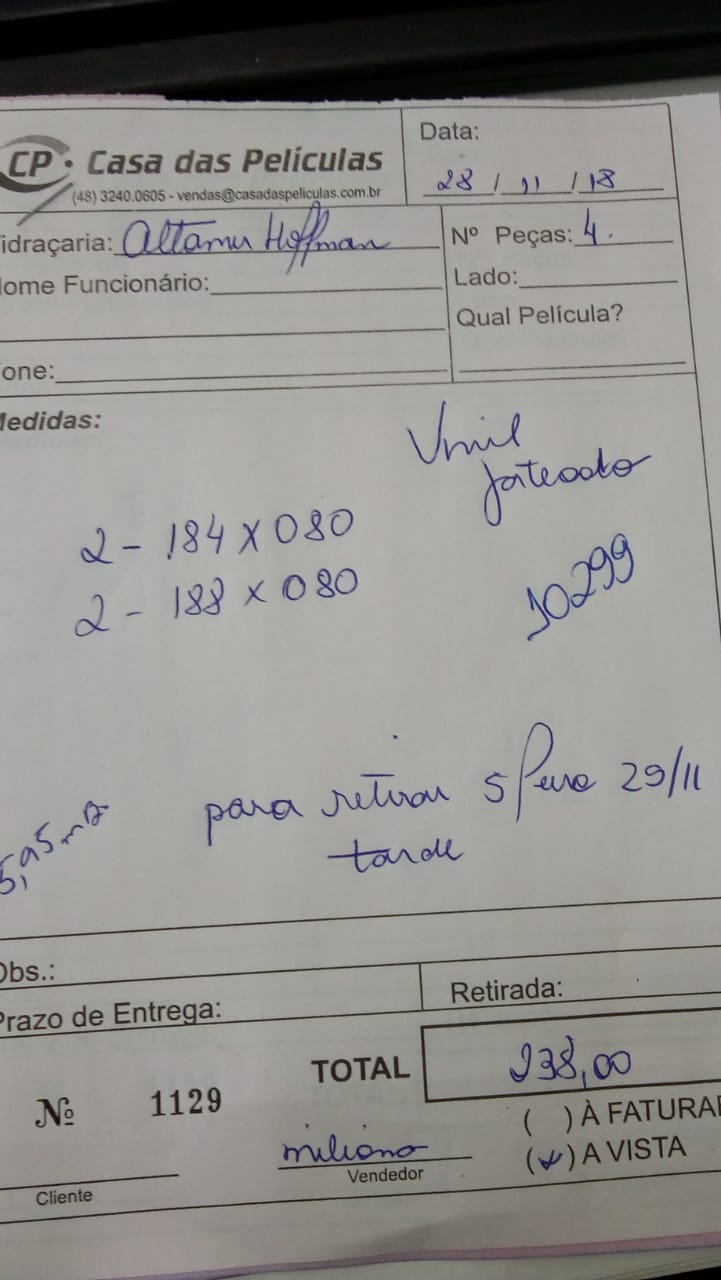 CP • Casa das Películas
(48) 3240.0605 - vendas@casadaspeliculas.com.br
Data:
28 / 11 / 18
idraçaria: Altamir Hoffman
Nº Peças: 4.
ome Funcionário:
Lado:
Qual Película?
one:
Medidas:
Vinil
jateado
2 - 184 X 080
2 - 188 X 080
10299
para retirar 5ª feira 29/11
tarde
Obs.:
Prazo de Entrega:
Retirada:
TOTAL
238,00
Nº 1129
( ) À FATURA
(x) A VISTA
Vendedor
Cliente